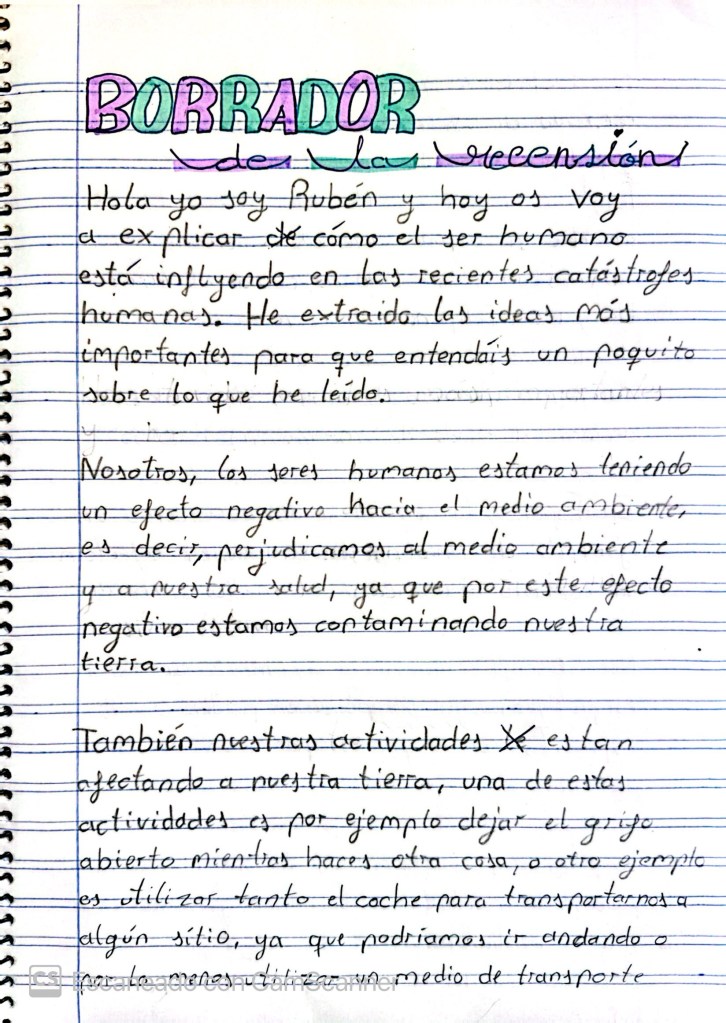 BORRADOR
de la recensión
Hola yo soy Rubén y hoy os voy
a explicar de cómo el ser humano
está influyendo en las recientes catástrofes
humanas. He extraido las ideas más
importantes para que entendáis un poquito
sobre lo que he leído.
Nosotros, los seres humanos estamos teniendo
un efecto negativo hacia el medio ambiente,
es decir, perjudicamos al medio ambiente
y a nuestra salud, ya que por este efecto
negativo estamos contaminando nuestra
tierra.
También nuestras actividades estan
afectando a nuestra tierra, una de estas
actividades es por ejemplo dejar el grifo
abierto mientras haces otra cosa, o otro ejemplo
es utilizar tanto el coche para transportarnos a
algún sitio, ya que podríamos ir andando o
por lo menos utilizar un medio de transporte
CS Escaneado con CamScanner